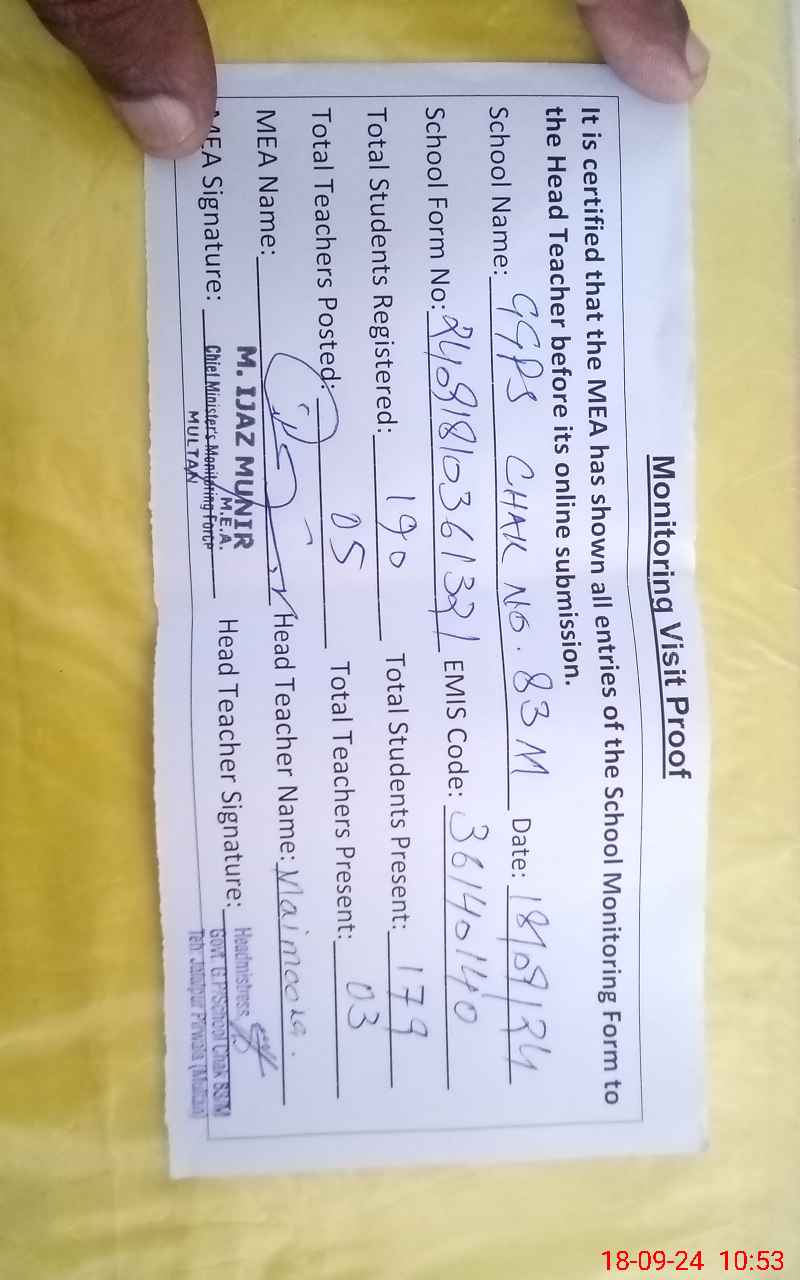 Monitoring Visit Proof
It is certified that the MEA has shown all entries of the School Monitoring Form to
the Head Teacher before its online submission.
School Name: GGPS CHAK NO. 83 M Date: 18/09/24
School Form No: 24091810361321 EMIS Code: 36140140
Total Students Registered: 190 Total Students Present: 179
Total Teachers Posted: 05 Total Teachers Present: 03
MEA Name: Head Teacher Name: Maimoona.
M. IJAZ MUNIR
M.E.A.
MEA Signature: Chief Minister's Monitoring Force Head Teacher Signature: Headmistress
MULTAN
Govt. G.P/School Chak 83/M
Teh. Jalalpur Pirwala (Multan)
18-09-24 10:53